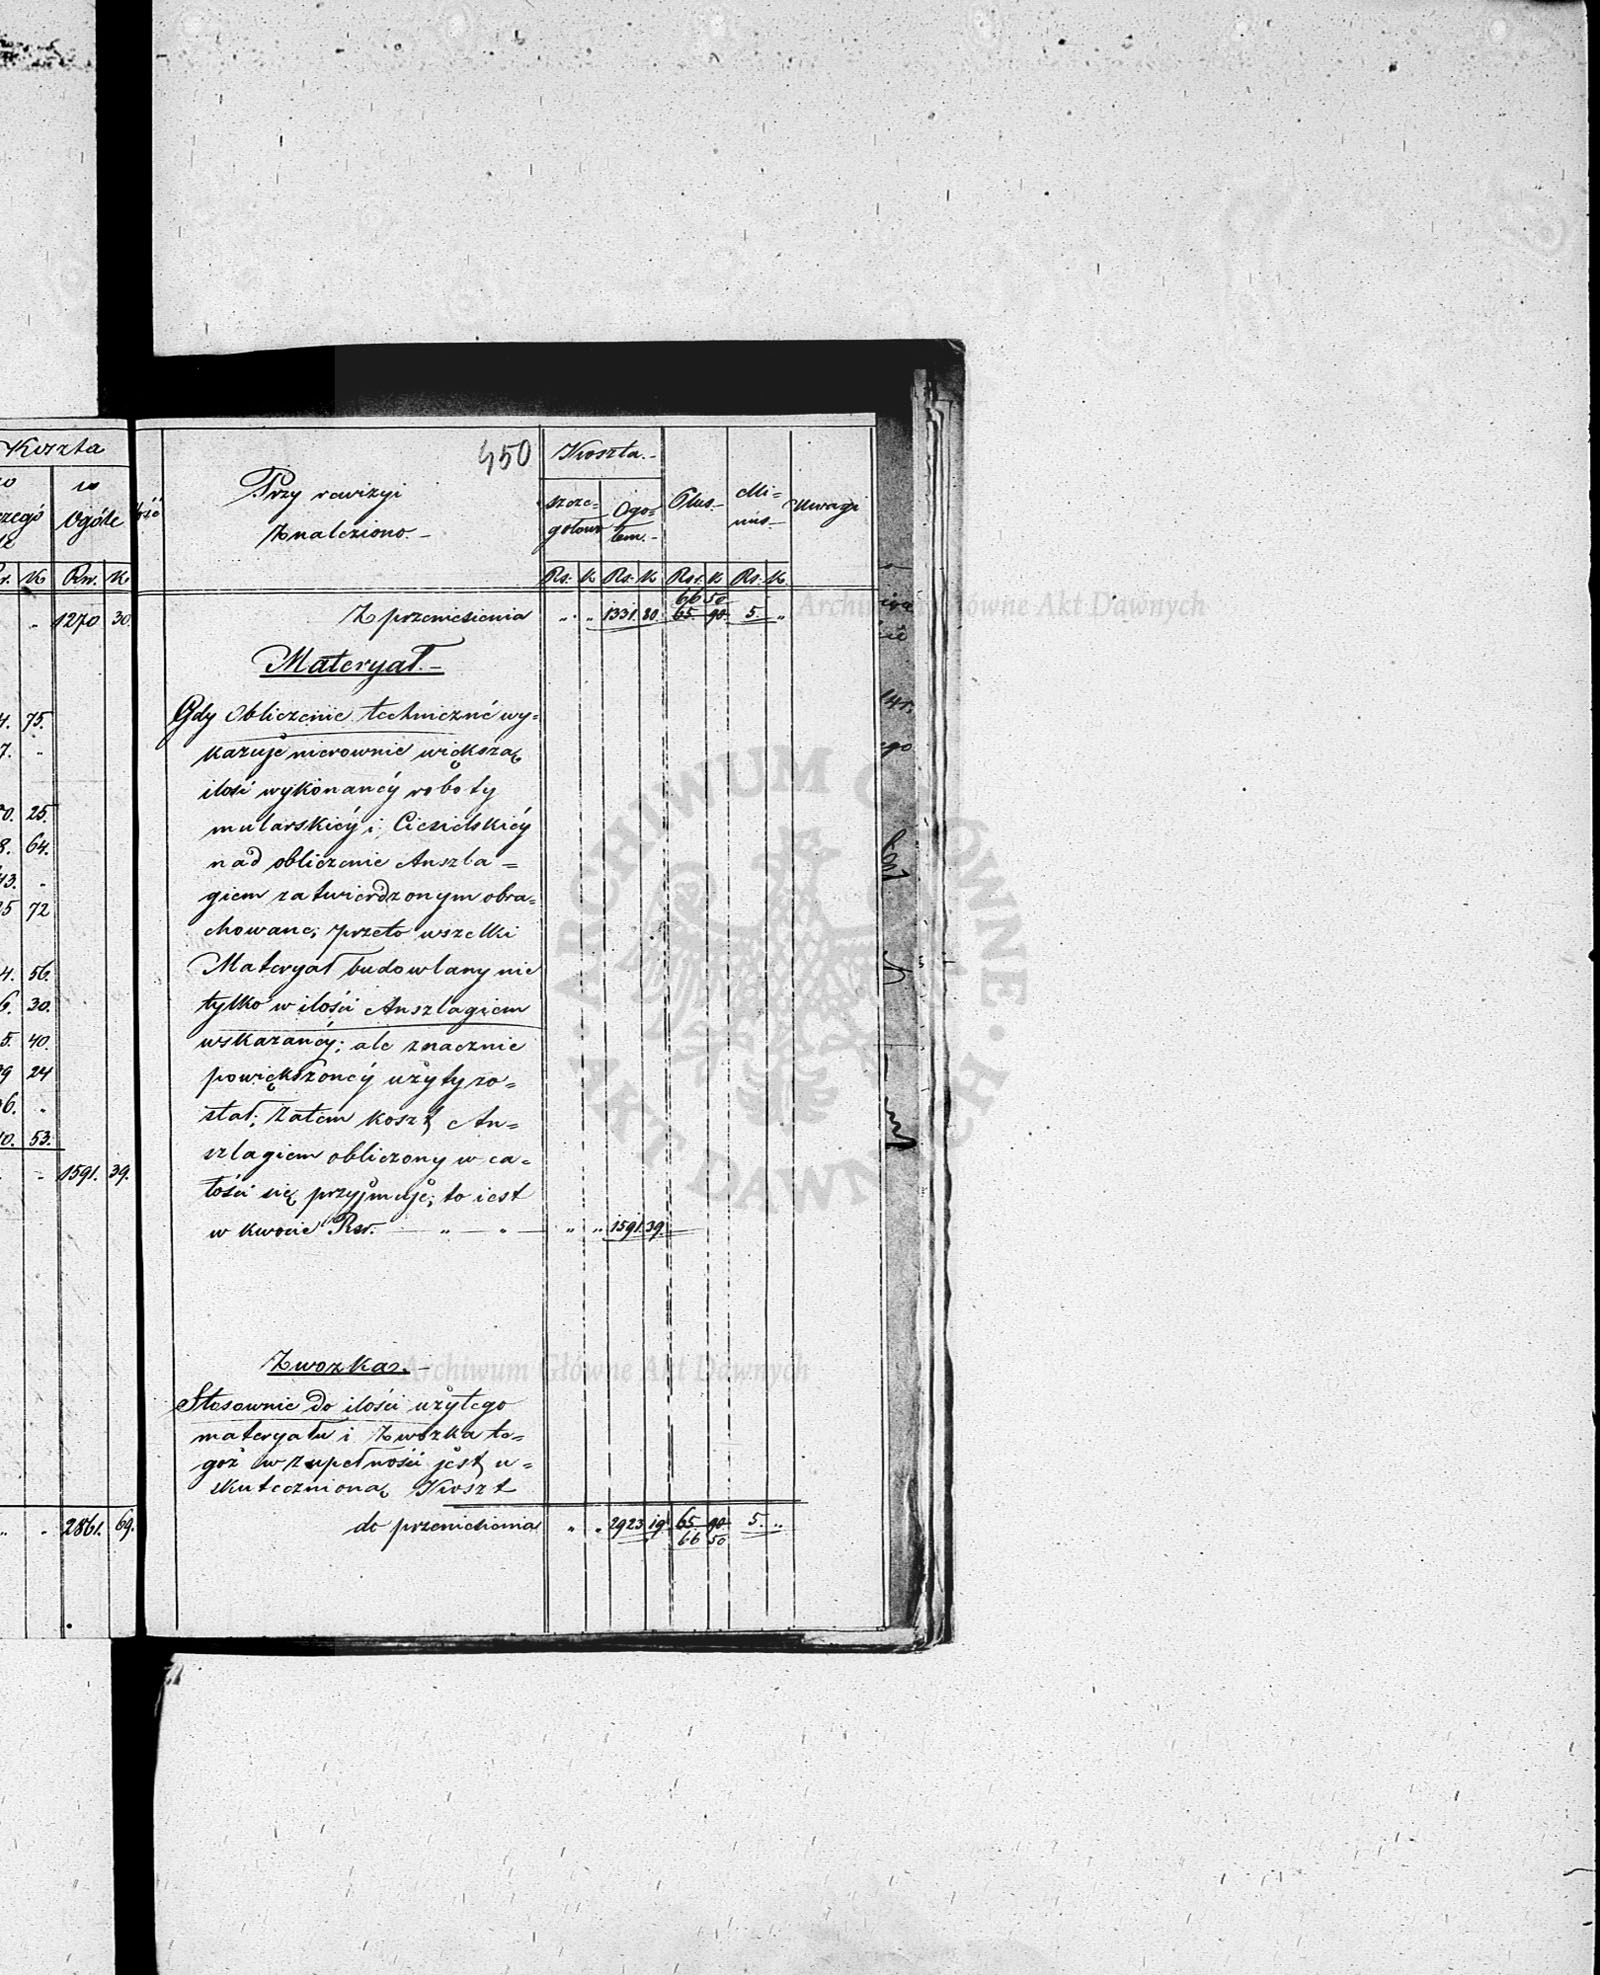 Koszta
w
Ogóle
K Rsr. K
1270 30.
75.
25.
64.
72
56.
30.
40.
24
53.
1591. 39.
2861. 69.
450
Przy rewizyi
Znaleziono.
Koszta.
szcze=
gółowo
Ogó=
łem.
Plus.
Mi=
nus.
Uwagi
Rs. K Rs. K Rsr. K Rs. K
66 50
Z przeniesienia „ „ 1331. 80. 65. 90. 5. „
Materyał.
Gdy obliczenie techniczné wy=
kazuje nierównie większą
ilość wykonanéy roboty
mularskiéy i Ciesielskiéy
nad obliczenie Anszla=
giem zatwierdzonym obra=
chowane; przeto wszelki
Materyał budowlany nie
tylko w ilości Anszlagiem
wskazanéy; ale znacznie
powiększonéy użyty zo=
stał; zatem koszt An=
szlagiem obliczony w ca=
łości się przyjmuje; to iest
w kwocie Rsr. „ „ „ „ 1591. 39.
Zwozka.
Stosownie do ilości użytego
materyału i Zwózka te=
goż w zupełności jest u=
skutecznioną Koszt
do przeniesienia „ „ 2923 19 65 90 5. „
66 50
Archiwum Główne Akt Dawnych
ARCHIWUM GŁÓWNE · AKT DAWNYCH ·
Archiwum Główne Akt Dawnych